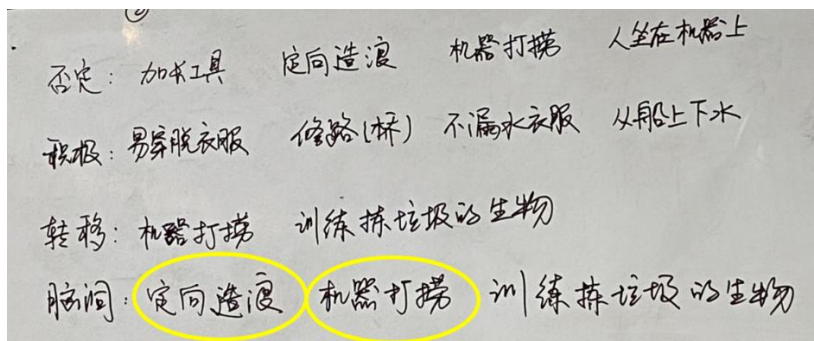 否定：加长工具 定向造浪 机器打捞 人坐在机器上
积极：易穿脱衣服 修路(桥) 不漏水衣服 从船上下水
转移：机器打捞 训练拣垃圾的生物
脑洞：定向造浪 机器打捞 训练拣垃圾的生物